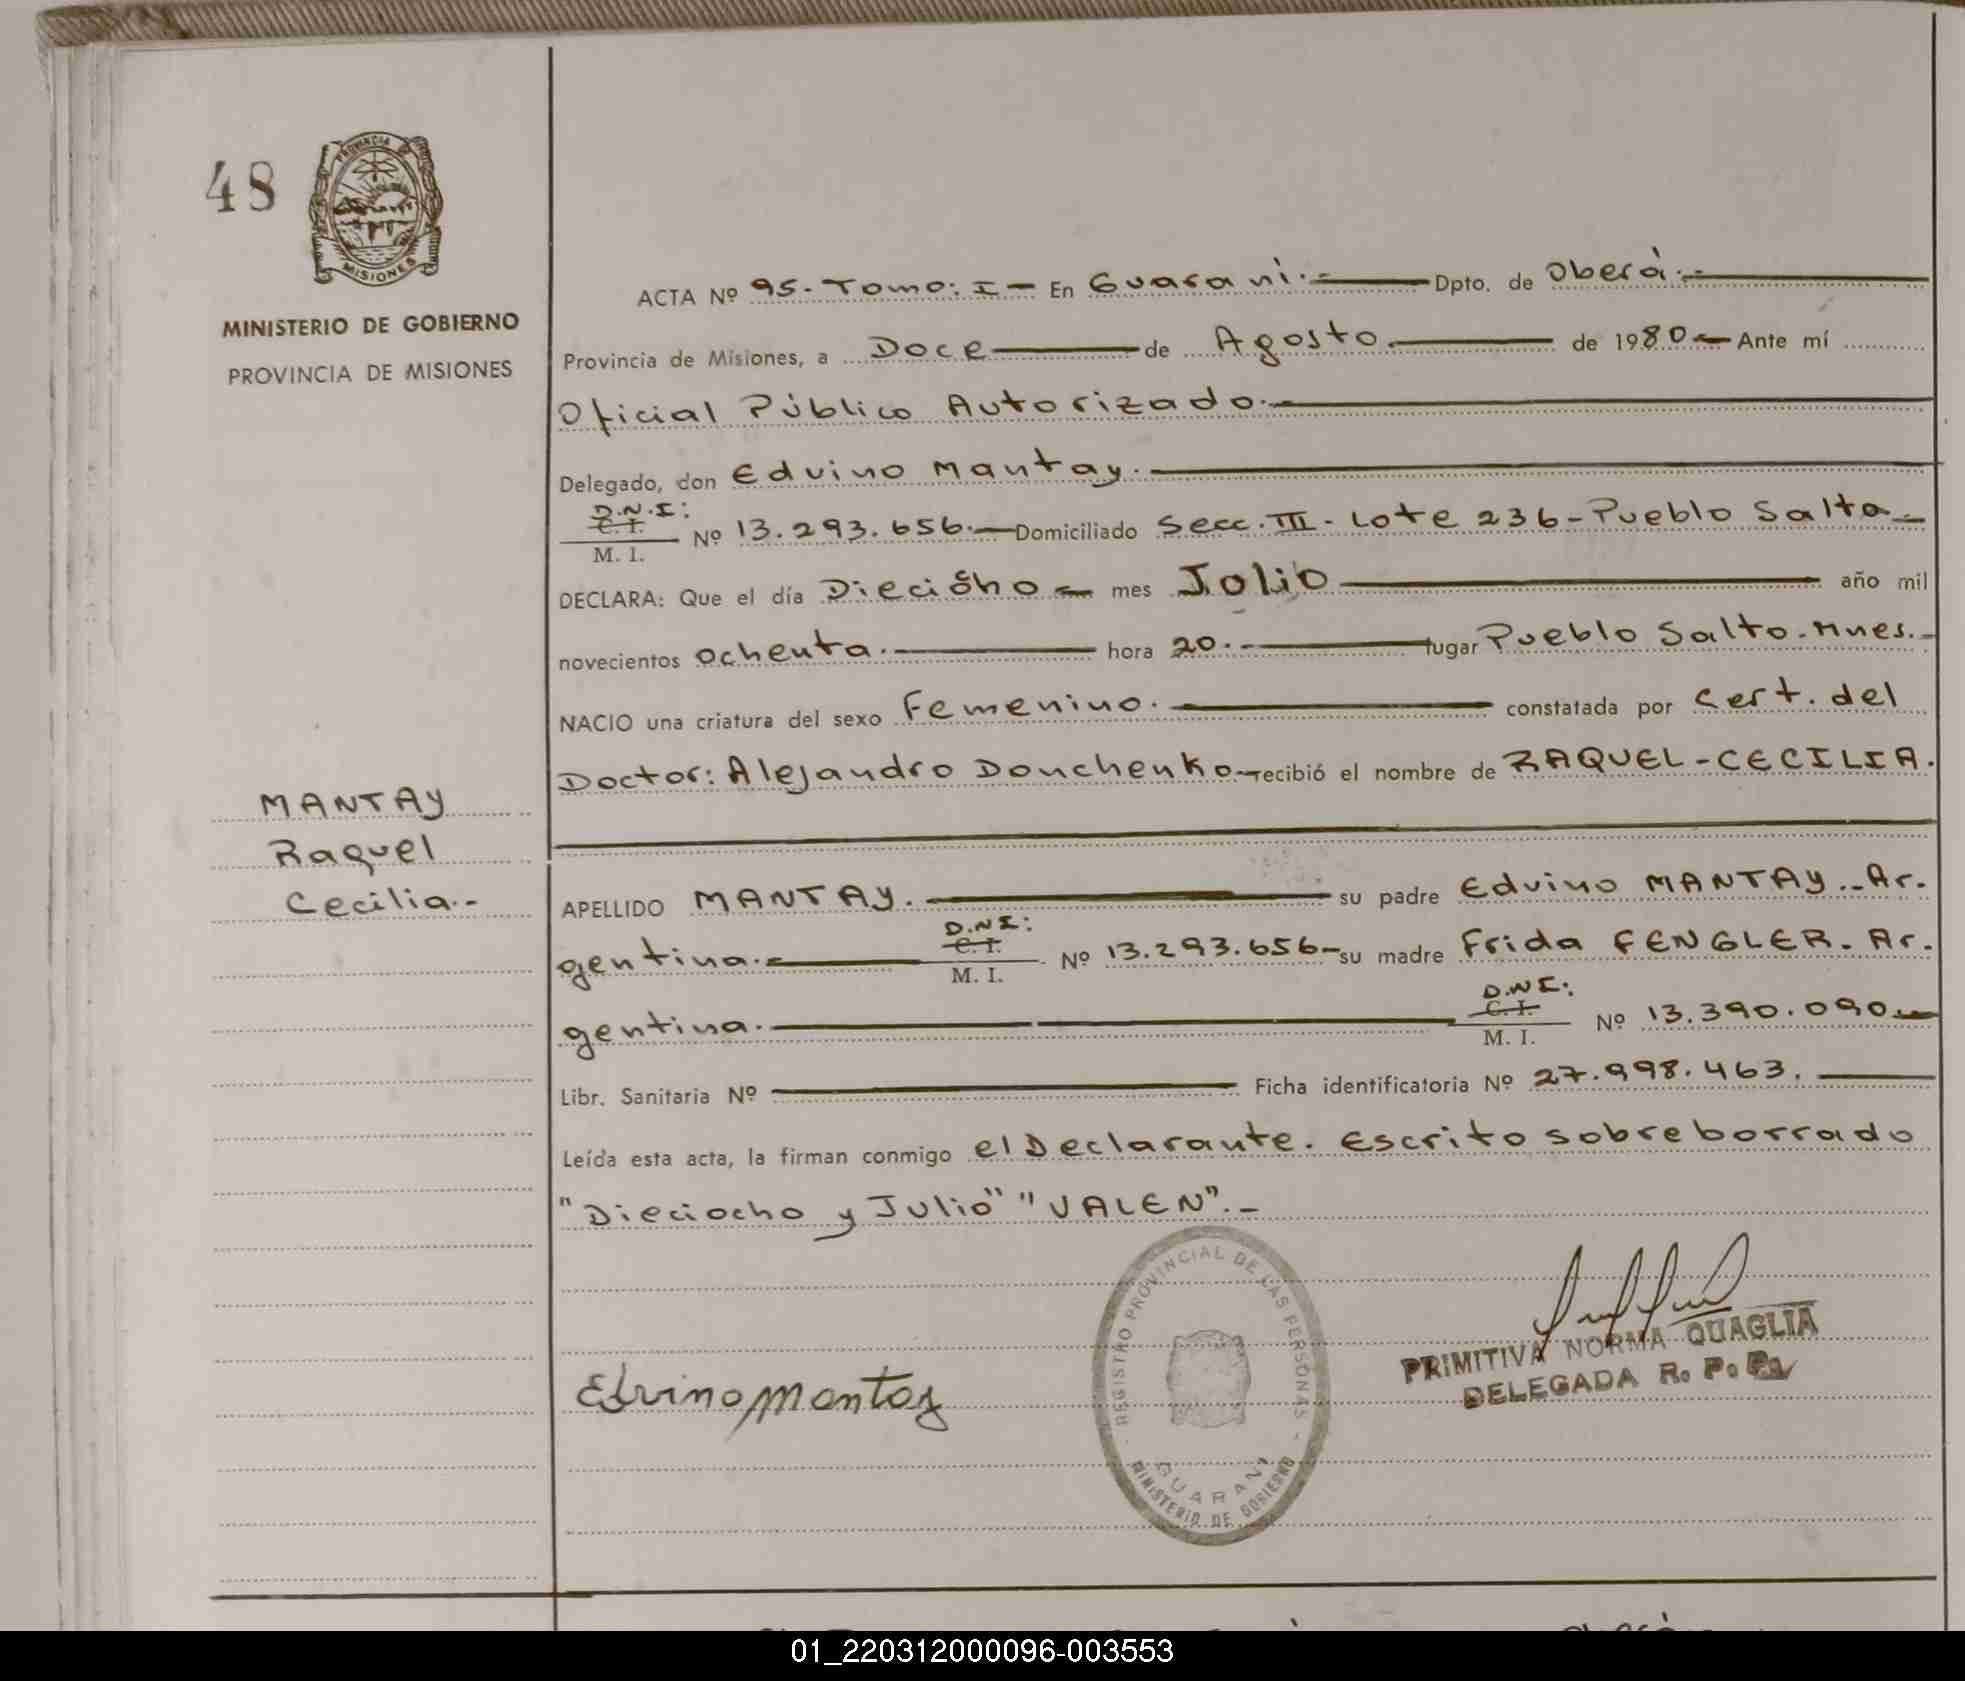 48
PROVINCIA DE
MISIONES
MINISTERIO DE GOBIERNO
PROVINCIA DE MISIONES
ACTA Nº 95.- Tomo: I - En Guaraní.- Dpto. de Oberá.-
Provincia de Misiones, a Doce de Agosto. de 1980 - Ante mí
Oficial Público Autorizado.-
Delegado, don Edvino Mantay.
D.N.I:
C. I.
M. I. Nº 13.293.656.- Domiciliado Secc. III - Lote 236 - Pueblo Salto -
DECLARA: Que el día Dieciocho - mes Julio año mil
novecientos ochenta. hora 20. lugar Pueblo Salto. Mnes.-
NACIO una criatura del sexo Femenino. constatada por Cert. del
Doctor: Alejandro Donchenko - recibió el nombre de RAQUEL - CECILIA.
MANTAY
Raquel
Cecilia.-
APELLIDO MANTAY. su padre Edvino MANTAY.- Ar.
gentina.- D.N.I: C. I. M. I. Nº 13.293.656 - su madre Frida FENGLER. Ar.
gentina. D.N.I: C. I. M. I. Nº 13.390.090.-
Libr. Sanitaria Nº Ficha identificatoria Nº 27.998.463.
Leída esta acta, la firman conmigo el Declarante. Escrito sobre borrado
"Dieciocho y Julio" "VALEN".-
REGISTRO PROVINCIAL DE LAS PERSONAS
GUARANI
MINISTERIO DE GOBIERNO
Edvino Mantay
PRIMITIVA NORMA QUAGLIA
DELEGADA R. P. P.
01_220312000096-003553